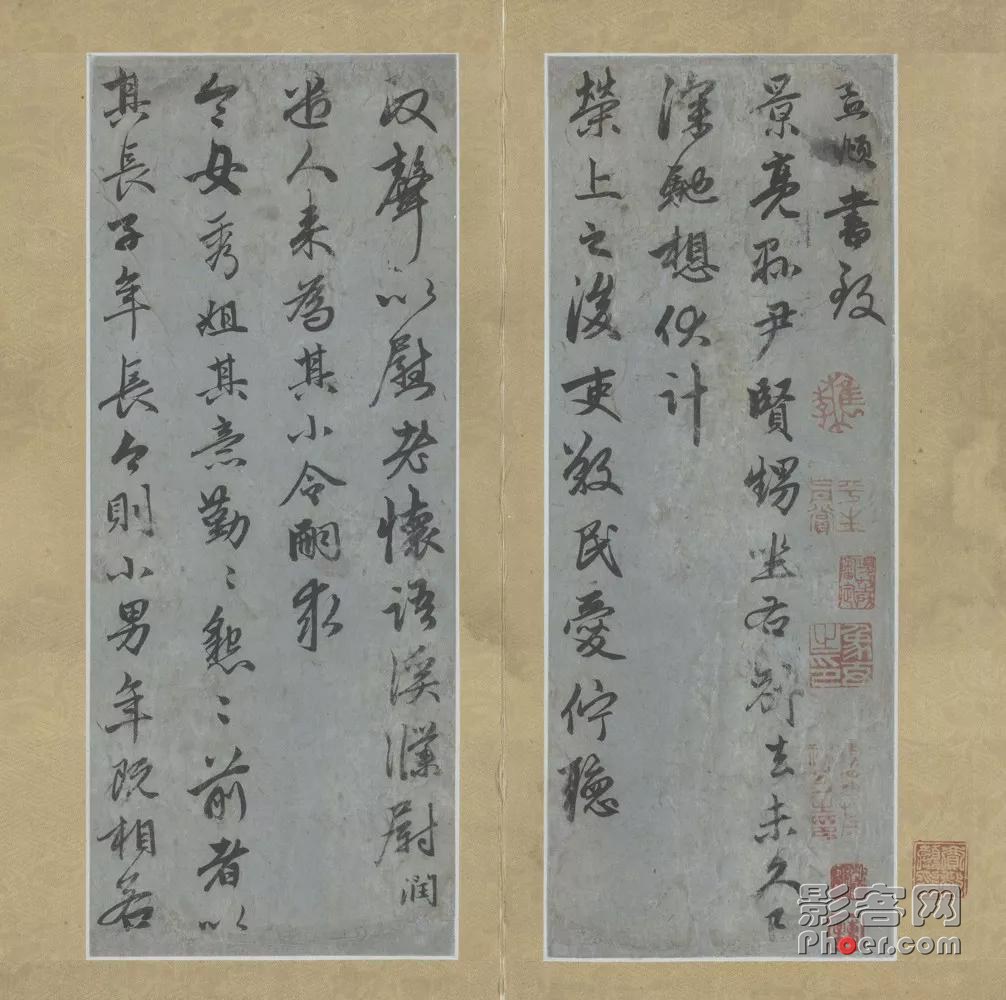 孟頫書致
景亮縣尹賢甥坐右別去未久已
深馳想伏計
榮上之後吏畏民愛佇聽
政聲以慰老懷語溪濮尉潤
遣人来為其小令嗣求
令女秀姐其意勤〻懇〻前者以
其長子年長今則小男年既相若
影客网
Phoer.com